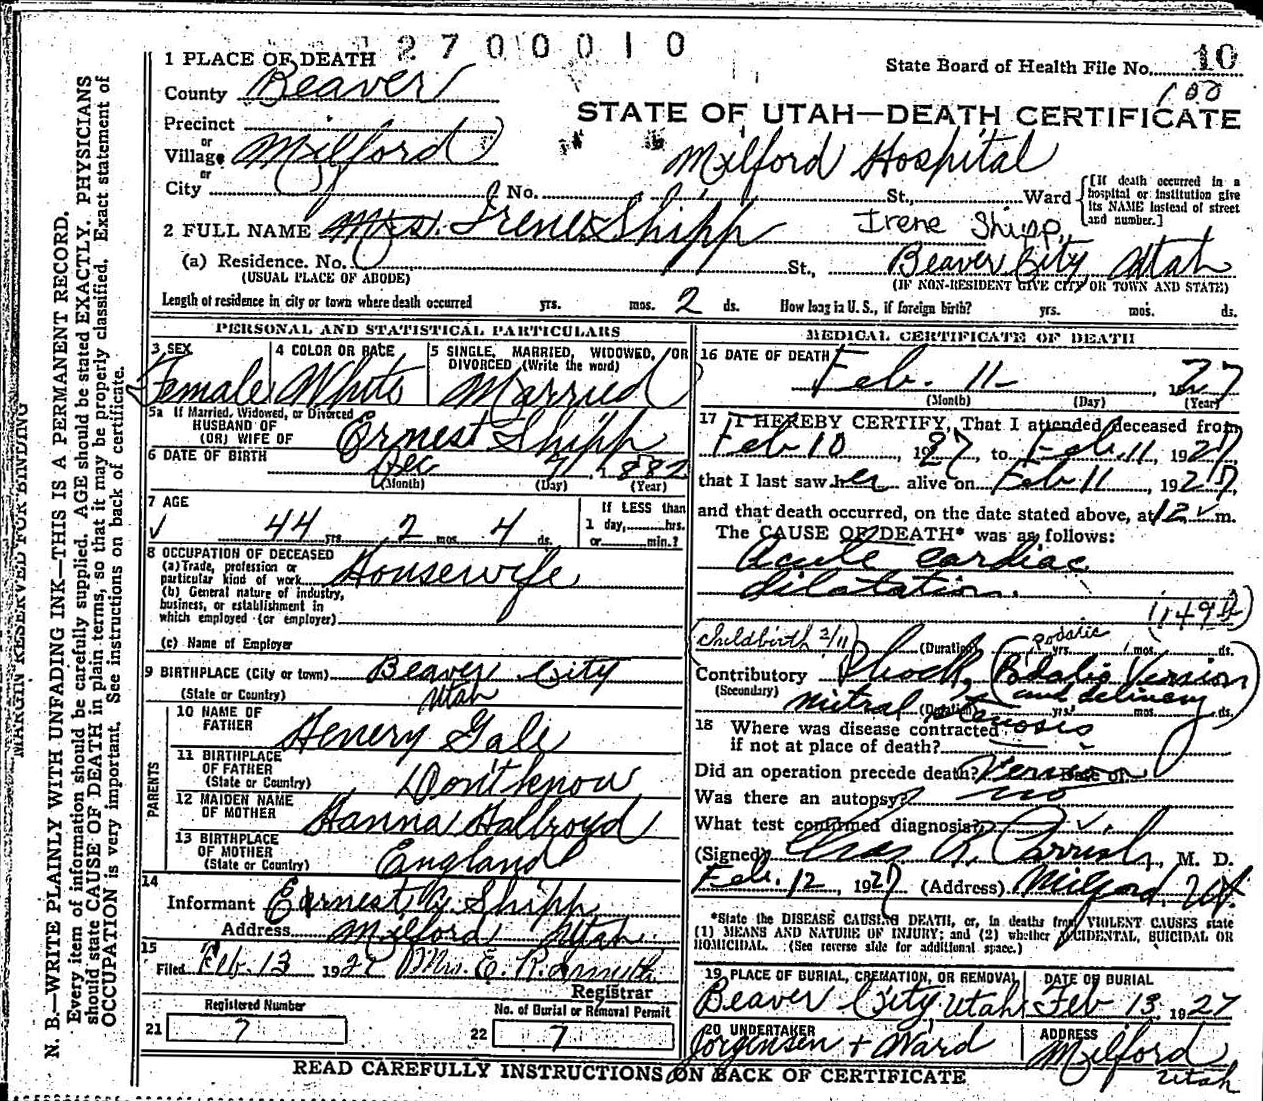 2700010
1 PLACE OF DEATH
State Board of Health File No. 10
County Beaver
100
STATE OF UTAH—DEATH CERTIFICATE
Precinct
or
Village Milford
Milford Hospital
or
City No. St., Ward
[If death occurred in a hospital or institution give its NAME instead of street and number.]
2 FULL NAME Mrs. Irene Shipp Irene Shipp
(a) Residence. No. St., Beaver City, Utah
(USUAL PLACE OF ABODE) (IF NON-RESIDENT GIVE CITY OR TOWN AND STATE)
Length of residence in city or town where death occurred yrs. mos. 2 ds. How long in U. S., if foreign birth? yrs. mos. ds.
PERSONAL AND STATISTICAL PARTICULARS
3 SEX
Female
4 COLOR OR RACE
White
5 SINGLE, MARRIED, WIDOWED, OR
DIVORCED (Write the word)
Married
5a If Married, Widowed, or Divorced
HUSBAND OF
(OR) WIFE OF Ernest Shipp
6 DATE OF BIRTH Dec 7, 1882
(Month) (Day) (Year)
7 AGE
44 yrs. 2 mos. 4 ds.
If LESS than
1 day, hrs.
or min.?
8 OCCUPATION OF DECEASED
(a) Trade, profession or
particular kind of work Housewife
(b) General nature of industry,
business, or establishment in
which employed (or employer)
(c) Name of Employer
9 BIRTHPLACE (City or town) Beaver City
(State or Country) Utah
PARENTS
10 NAME OF
FATHER Henery Gale
11 BIRTHPLACE
OF FATHER
(State or Country) Don't know
12 MAIDEN NAME
OF MOTHER Hanna Hallroyd
13 BIRTHPLACE
OF MOTHER
(State or Country) England
14
Informant Earnest G. Shipp
Address Milford Utah
15
Filed Feb. 13 1927 Mrs. E. R.
Registrar
Registered Number
21 7
No. of Burial or Removal Permit
22 7
MEDICAL CERTIFICATE OF DEATH
16 DATE OF DEATH
Feb. 11 1927
(Month) (Day) (Year)
17 I HEREBY CERTIFY, That I attended deceased from
Feb 10, 1927, to Feb. 11, 1927,
that I last saw her alive on Feb 11, 1927,
and that death occurred, on the date stated above, at 12 m.
The CAUSE OF DEATH* was as follows:
Acute cardiac
dilatation.
(149b)
(childbirth 2/11 (Duration) podalic yrs. mos. ds.
Contributory Shock, (Podalic Version
(Secondary) and delivery)
mitral stenosis (Duration) yrs. mos. ds.
18 Where was disease contracted
if not at place of death?
Did an operation precede death? Version Date of
Was there an autopsy? no
What test confirmed diagnosis?
(Signed) Chas. Parrish, M. D.
Feb. 12 1927 (Address) Milford, Ut.
*State the DISEASE CAUSING DEATH, or, in deaths from VIOLENT CAUSES state
(1) MEANS AND NATURE OF INJURY; and (2) whether ACCIDENTAL, SUICIDAL OR
HOMICIDAL. (See reverse side for additional space.)
19 PLACE OF BURIAL, CREMATION, OR REMOVAL
Beaver City, Utah
DATE OF BURIAL
Feb 13, 1927
20 UNDERTAKER
Jorgensen + Ward
ADDRESS
Milford
Utah
READ CAREFULLY INSTRUCTIONS ON BACK OF CERTIFICATE
MARGIN RESERVED FOR BINDING
N. B.—WRITE PLAINLY WITH UNFADING INK—THIS IS A PERMANENT RECORD.
Every item of information should be carefully supplied. AGE should be stated EXACTLY. PHYSICIANS
should state CAUSE OF DEATH in plain terms, so that it may be properly classified. Exact statement of
OCCUPATION is very important. See instructions on back of certificate.